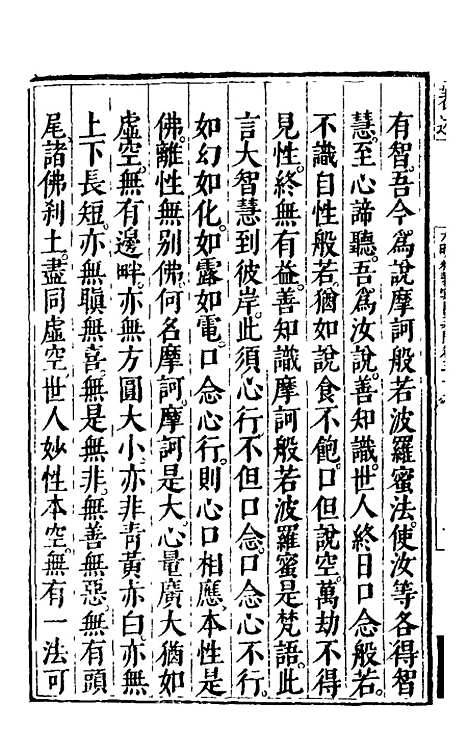 有智。吾今爲說摩訶般若波羅蜜法。使汝等各得智
慧。至心諦聽。吾爲汝說。善知識。世人終日口念般若。
不識自性般若。猶如說食不飽。口但說空。萬劫不得
見性。終無有益。善知識。摩訶般若波羅蜜。是梵語。此
言大智慧到彼岸。此須心行。不但口念。口念心不行。
如幻如化。如露如電。口念心行。則心口相應。本性是
佛。離性無別佛。何名摩訶。摩訶是大。心量廣大。猶如
虛空。無有邊畔。亦無方圓大小。亦非青黃赤白。亦無
上下長短。亦無瞋無喜。無是無非。無善無惡。無有頭
尾。諸佛刹土。盡同虛空。世人妙性本空。無有一法可